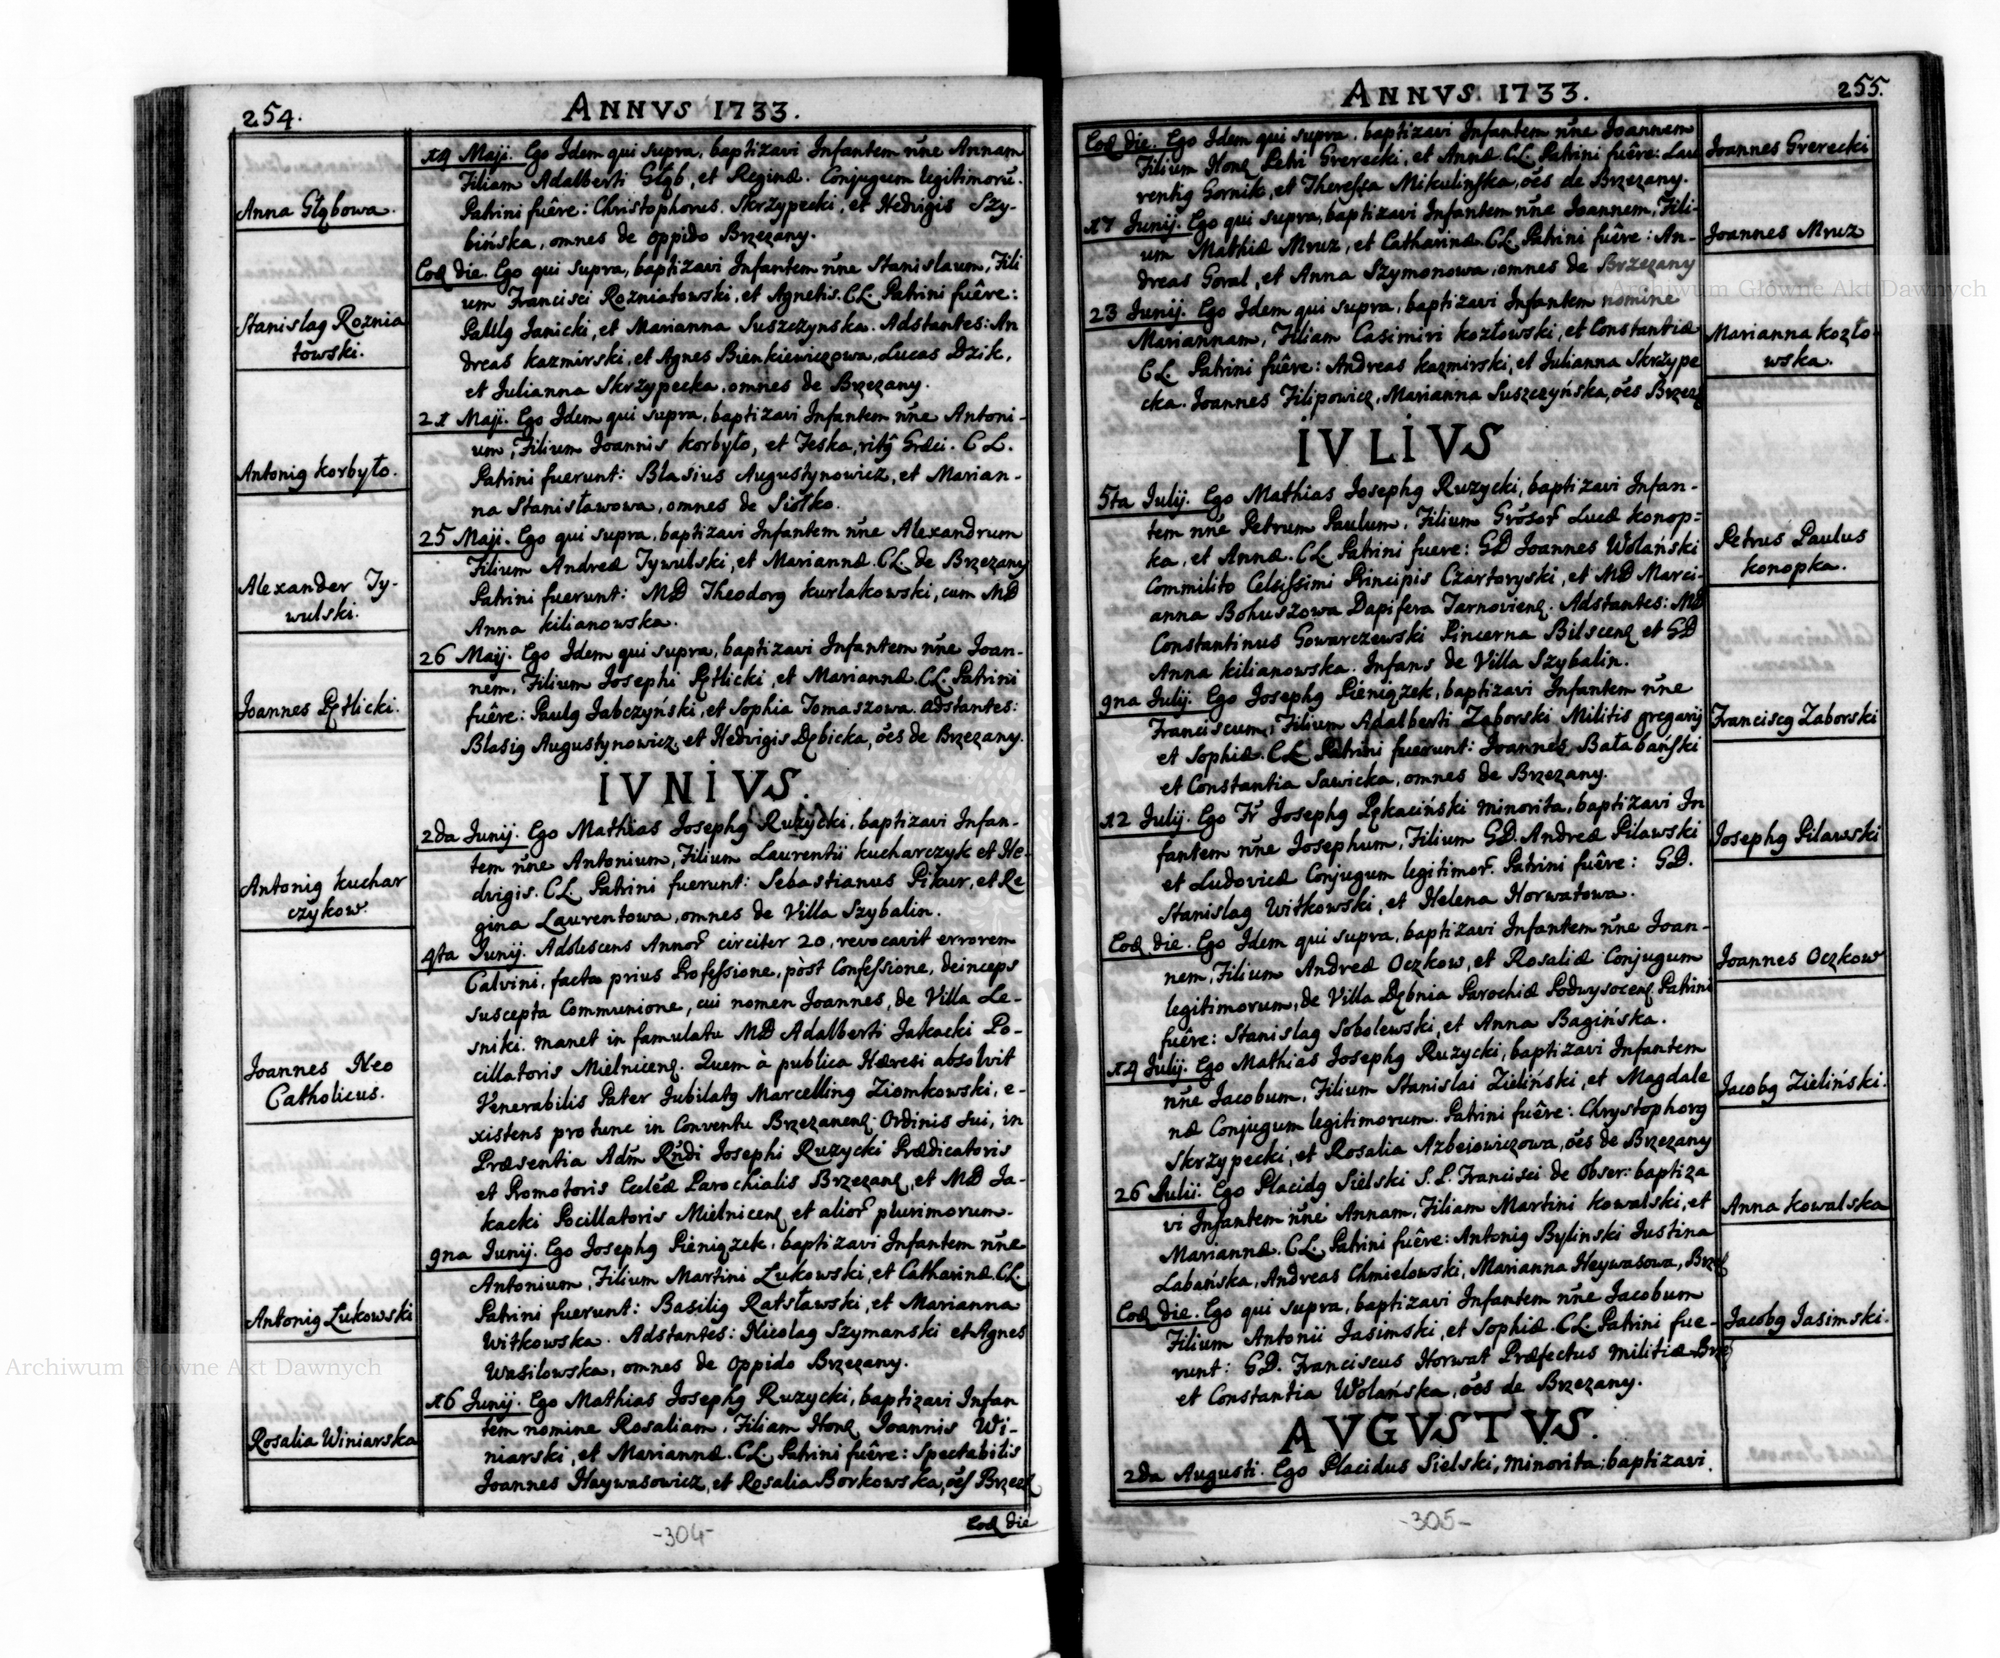 254.
ANNVS 1733.
Anna Głąbowa.
Stanislaꝰ Roznia
towski.
Antoniꝰ Korbyło.
Alexander Ty-
wulski.
Joannes Pętlicki.
Antoniꝰ Kuchar
czykow.
Joannes Neo
Catholicus.
Antoniꝰ Lukowski
Rosalia Winiarska
19 Maji. Ego Idem qui supra, baptizavi Infantem nn̄e Annam
Filiam Adalberti Głąb, et Reginæ. Conjugum legitimorū.
Patrini fuêre: Christophorus Skrzypecki, et Hedvigis Szy-
bińska, omnes de oppido Brzezany.
Eoꝺ die. Ego qui supra, baptizavi Infantem nn̄e Stanislaum, Fili
um Francisci Rozniatowski, et Agnetis. CL. Patrini fuêre:
Paulꝰ Janicki, et Marianna Suszczynska. Adstantes: An
dreas Kazmirski, et Agnes Bieńkiewiczowa, Lucas Dzik,
et Julianna Skrzypecka, omnes de Brzezany.
21 Maji. Ego Idem qui supra, baptizavi Infantem nn̄e Antoni-
um, Filium Joannis Korbyło, et Teska, ritꝰ Græci. CL.
Patrini fuerunt: Blasius Augustynowicz, et Marian-
na Stanisławowa, omnes de Siołko.
25 Maji. Ego qui supra, baptizavi Infantem nn̄e Alexandrum
Filium Andreæ Tywulski, et Mariannæ. CL. de Brzezany
Patrini fuerunt: MD Theodorꝰ Kurlakowski, cum MD
Anna Kilianowska.
26 Maij. Ego Idem qui supra, baptizavi Infantem nn̄e Joan-
nem, Filium Josephi Pętlicki, et Mariannæ. CL. Patrini
fuêre: Paulꝰ Jabczyński, et Sophia Tomaszowa. adstantes:
Blasiꝰ Augustynowicz, et Hedvigis Dębicka, oēs de Brzezany.
IVNIVS.
2da Junij. Ego Mathias Josephꝰ Ruzycki, baptizavi Infan-
tem nn̄e Antonium, Filium Laurentii Kucharczyk et He-
dvigis. CL. Patrini fuerunt: Sebastianus Pikur, et Re
gina Laurentowa, omnes de Villa Szybalin.
4ta Junij. Adolescens Annoꝝ circiter 20, revocavit errorem
Calvini, facta prius Professione, pòst Confessione, deinceps
suscepta Communione, cui nomen Joannes, de Villa Le-
sniki. manet in famulatu MD Adalberti Jakacki Po-
cillatoris Mielnicenꝭ. Quem à publica Hæresi absolvit
Venerabilis Pater Jubilatꝰ Marcellinꝰ Ziomkowski, e-
xistens pro tunc in Conventu Brzezanenꝭ Ordinis sui, in
Præsentia Adm̄ Rn̄di Josephi Ruzycki Prædicatoris
et Promotoris Ecclēæ Parochialis Brzezanꝭ, et MD Ja-
kacki Pocillatoris Mielnicenꝭ et alioꝝ plurimorum.
9na Junij. Ego Josephꝰ Pieniązek, baptizavi Infantem nn̄e
Antonium, Filium Martini Lukowski, et Catharinæ. CL.
Patrini fuerunt: Basiliꝰ Ratsławski, et Marianna
Witkowska. Adstantes: Nicolaꝰ Szymanski et Agnes
Wasilowska, omnes de Oppido Brzezany.
16 Junij. Ego Mathias Josephꝰ Ruzycki, baptizavi Infan
tem nomine Rosaliam, Filiam Honꝭ Joannis Wi-
niarski, et Mariannæ. CL. Patrini fuêre: Spectabilis
Joannes Haywasowicz, et Rosalia Borkowska, oēs Brzezꝭ
Eoꝺ die
-304-
ANNVS 1733.
255.
Eoꝺ die. Ego Idem qui supra, baptizavi Infantem nn̄e Joannem
Filium Honꝭ Petri Grerecki, et Annæ CL. Patrini fuêre: Lau
rentiꝰ Gornik, et Theressa Mikulińska, oēs de Brzezany.
17 Junij. Ego qui supra, baptizavi Infantem nn̄e Joannem, Fili-
um Mathiæ Mruz, et Catharinæ. CL. Patrini fuêre: An-
dreas Goral, et Anna Szymonowa, omnes de Brzezany
23 Junij. Ego Idem qui supra, baptizavi Infantem nomine
Mariannam, Filiam Casimiri Kozłowski, et Constantiæ
CL. Patrini fuêre: Andreas Kazmirski, et Julianna Skrzype
cka. Joannes Filipowicz, Marianna Suszczyńska, oēs Brzezꝭ
IVLIVS
5ta Julij. Ego Mathias Josephꝰ Ruzycki, baptizavi Infan-
tem nn̄e Petrum Paulum, Filium Grōsoꝝ Lucæ Konop=
ka, et Annæ. CL. Patrini fuere: GD Joannes Wolański
Commilito Celsissimi Principis Czartoryski, et MD Marci-
anna Bohuszowa Dapifera Tarnovienꝭ. Adstantes: MD
Constantinus Gowarczewski Pincerna Bilscenꝭ et GD
Anna Kilianowska. Infans de Villa Szybalin.
9na Julij. Ego Josephꝰ Pieniązek, baptizavi Infantem nn̄e
Franciscum, Filium Adalberti Zaborski Militis gregarij
et Sophiæ. CL. Patrini fuerunt: Joannes Bałabański
et Constantia Sawicka, omnes de Brzezany.
12 Julij. Ego Fr̄ Josephꝰ Pękaciński minorita, baptizavi In
fantem nn̄e Josephum, Filium GD. Andreæ Pilawski
et Ludovicæ Conjugum legitimoꝝ. Patrini fuêre: GD.
Stanislaꝰ Witkowski, et Helena Horwatowa.
Eoꝺ die. Ego Idem qui supra, baptizavi Infantem nn̄e Joan-
nem, Filium Andreæ Oczkow, et Rosaliæ Conjugum
legitimorum, de Villa Dębnia Parochiæ Podwysocenꝭ Patrini
fuêre: Stanislaꝰ Sobolewski, et Anna Bagińska.
19 Julij. Ego Mathias Josephꝰ Ruzycki, baptizavi Infantem
nn̄e Jacobum, Filium Stanislai Zieliński, et Magdale
næ Conjugum legitimorum. Patrini fuêre: Chrystophorꝰ
Skrzypecki, et Rosalia Azbeiowiczowa, oēs de Brzezany
26 Julii. Ego Placidꝰ Sielski S. P. Francisci de Obser: baptiza
vi Infantem nn̄e Annam, Filiam Martini Kowalski, et
Mariannæ. CL. Patrini fuêre: Antoniꝰ Bylinski Justina
Labańska, Andreas Chmielowski, Marianna Heywasowa, Brzeꝭ
Eoꝺ die. Ego qui supra, baptizavi Infantem nn̄e Jacobum
Filium Antonii Jasimski, et Sophiæ. CL. Patrini fue-
runt: GD. Franciscus Horwat Præfectus militiæ Brzeꝭ
et Constantia Wolańska, oēs de Brzezany.
AVGVSTVS.
2da Augusti. Ego Placidus Sielski, minorita, baptizavi
Joannes Grerecki
Joannes Mruz
Marianna Kozło-
wska.
Petrus Paulus
Konopka.
Franciscꝰ Zaborski
Josephꝰ Pilawski
Joannes Oczkow
Jacobꝰ Zieliński.
Anna Kowalska
Jacobꝰ Jasimski.
-305-
Archiwum Główne Akt Dawnych
Archiwum Główne Akt Dawnych